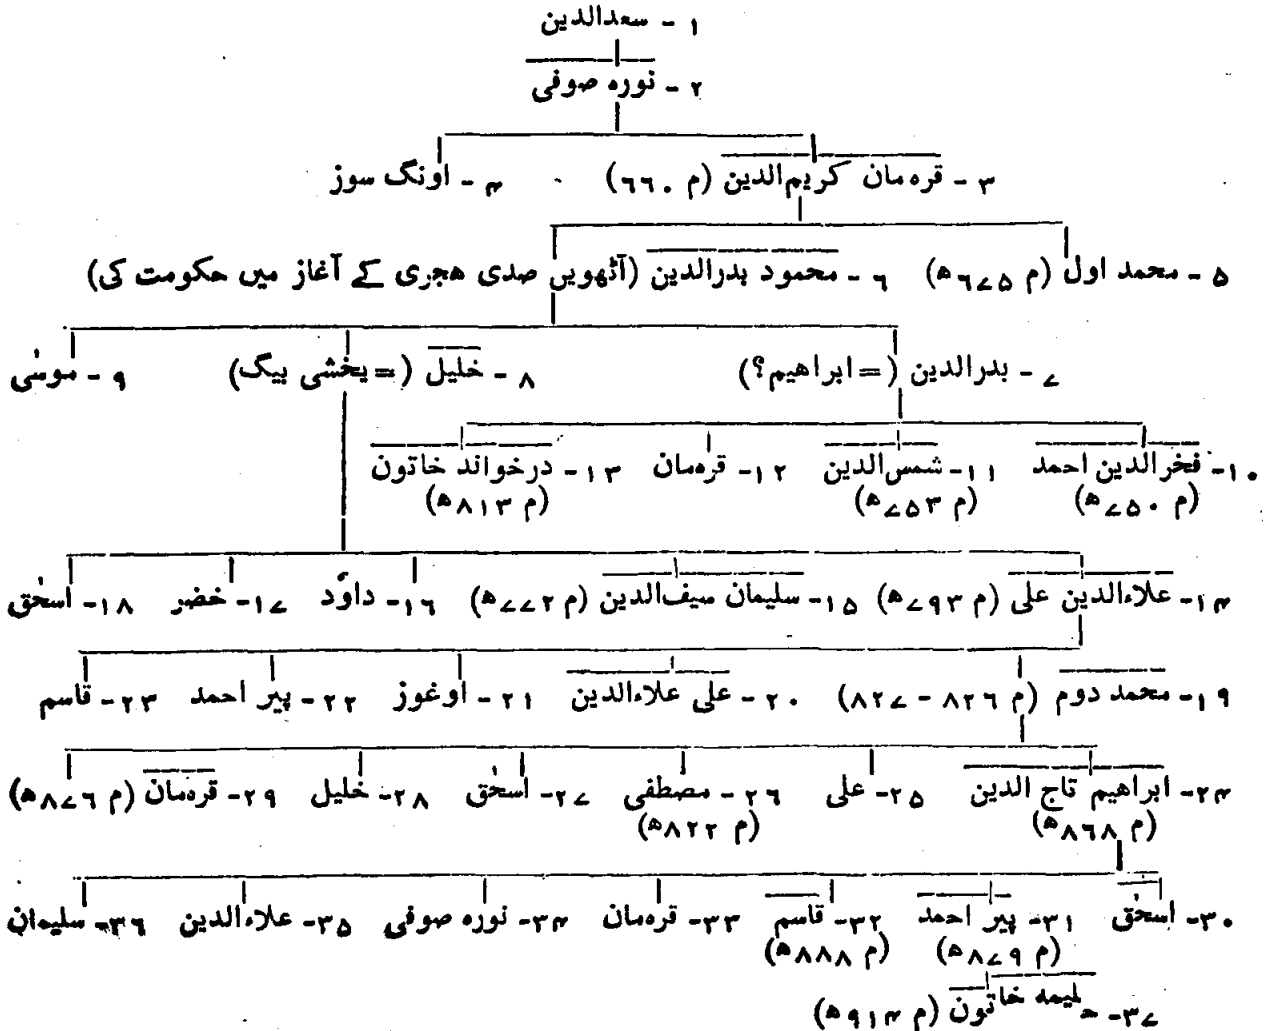 ۱ - سعدالدین
۲ - نورہ صوفی
۳ - قرہ مان کریم الدین (م ۶۶۰) ۴ - اونگ سوز
۵ - محمد اول (م ۶۷۵ھ) ۶ - محمود بدرالدین (آٹھویں صدی ھجری کے آغاز میں حکومت کی)
۷ - بدرالدین (= ابراھیم؟) ۸ - خلیل (= یخشی بیگ) ۹ - موسٰی
۱۰- فخرالدین احمد ۱۱- شمس الدین ۱۲- قرہ مان ۱۳- درخواند خاتون
(م ۷۵۰ھ) (م ۷۵۳ھ) (م ۸۱۳ھ)
۱۴- علاءالدین علی (م ۷۹۳ھ) ۱۵- سلیمان سیف الدین (م ۷۷۲ھ) ۱۶- داوٗد ۱۷- خضر ۱۸- اسحٰق
۱۹- محمد دوم (م ۸۲۶ - ۸۲۷) ۲۰- علی علاءالدین ۲۱- اوغوز ۲۲- پیر احمد ۲۳- قاسم
۲۴- ابراھیم تاج الدین ۲۵- علی ۲۶- مصطفی ۲۷- اسحٰق ۲۸- خلیل ۲۹- قرہ مان (م ۸۷۶ھ)
(م ۸۶۸ھ) (م ۸۲۲ھ)
۳۰- اسحٰق ۳۱- پیر احمد ۳۲- قاسم ۳۳- قرہ مان ۳۴- نورہ صوفی ۳۵- علاءالدین ۳۶- سلیمان
(م ۸۷۹ھ) (م ۸۸۸ھ)
۳۷- حلیمہ خاتون (م ۹۱۴ھ)